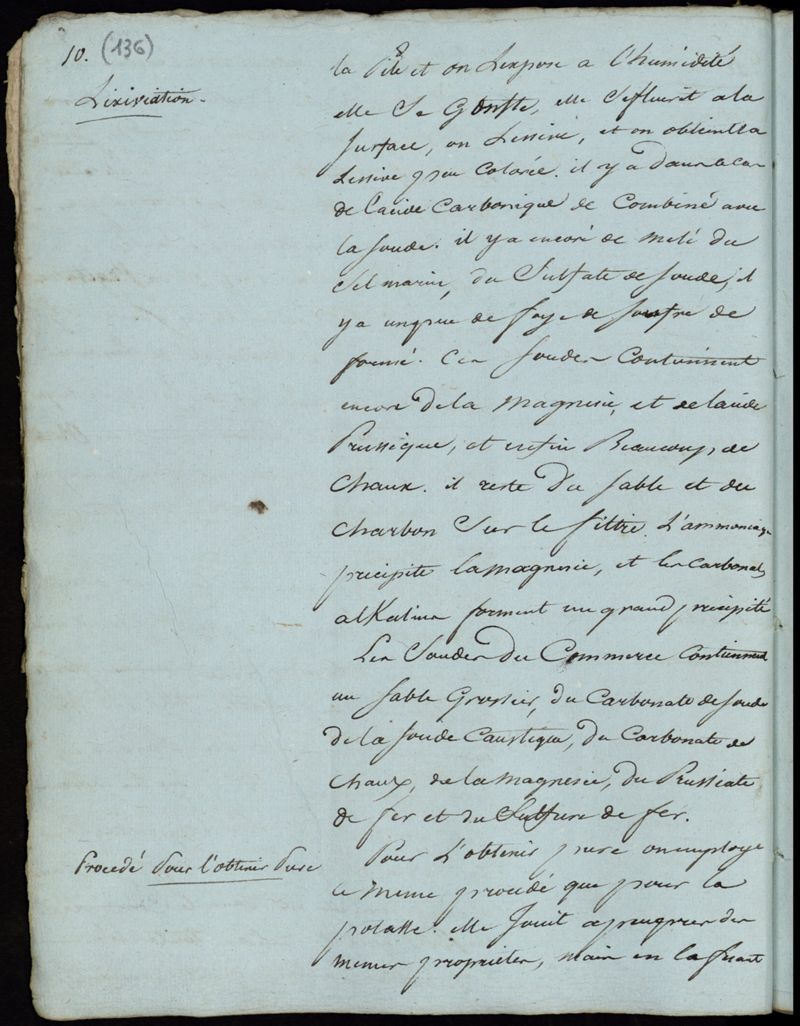 10. (136)
Lixiviation.
la Pile et on L'expose a l'humidité
elle Se Gonfle, elle S'efleurit a la
Surface, on Lessive, et on obtient la
Lessive peu Colorée. il y a dans le cas
de l'acide Carbonique de Combiné avec
la Soude. il y a encore de melé du
Sel marin, du Sulfate de Soude, il
y a un peu de foye de Soufre de
formé. Ces Soudes Contiennent
encore de la Magnesie, et de l'acide
Prussique, et enfin Beaucoup de
Chaux. il reste du Sable et du
Charbon Sur le filtre. L'ammoniaque
precipite la magnesie, et les Carbonates
alKalins forment un grand precipité
Les Soudes du Commerce Contiennent
un Sable Grossier, du Carbonate de Soude
de la Soude Caustique, du Carbonate de
Chaux, de la Magnesie, du Prussiate
de fer et du Sulfure de fer.
Procedé Pour l'obtenir Pure
Pour L'obtenir pure on employe
le Meme procedé que pour la
potasse. elle Jouit a peu pres des
memes proprietés, mais en la